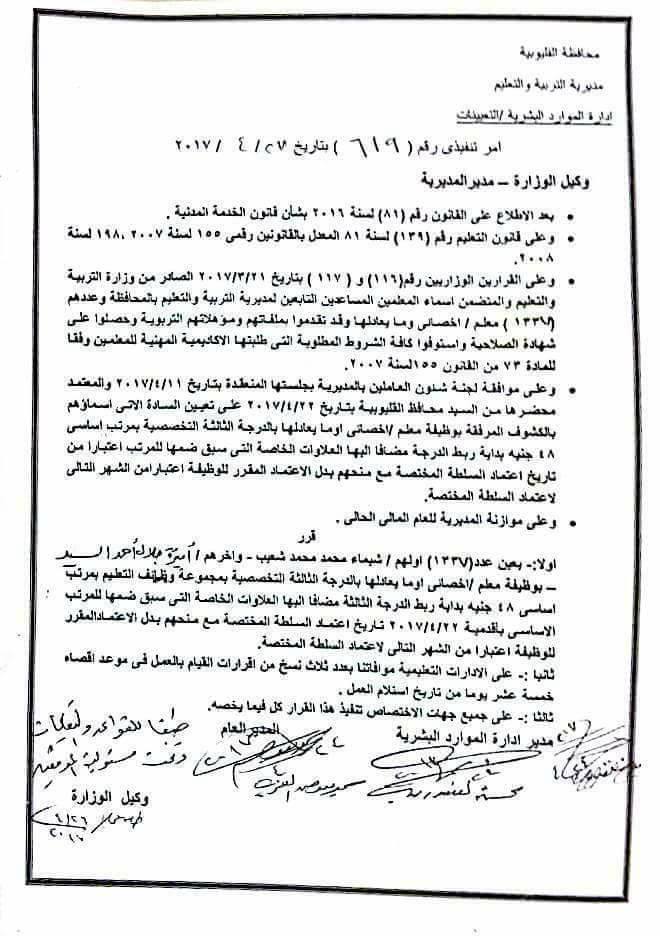 محافظة القليوبية
مديرية التربية والتعليم
ادارة الموارد البشرية /التعيينات
امر تنفيذى رقم ( ٦١٩ ) بتاريخ ٢٧/ ٤ / ٢٠١٧
وكيل الوزارة – مدير المديرية
• بعد الاطلاع على القانون رقم (٨١) لسنة ٢٠١٦ بشأن قانون الخدمة المدنية .
• وعلى قانون التعليم رقم (١٣٩) لسنة ٨١ المعدل بالقانونين رقمى ١٥٥ لسنة ٢٠٠٧ ،١٩٨ لسنة
٢٠٠٨.
• وعلى القرارين الوزاريين رقم(١١٦) و ( ١١٧ ) بتاريخ ٢٠١٧/٣/٢١ الصادر من وزارة التربية
والتعليم والمتضمن اسماء المعلمين المساعدين التابعين لمديرية التربية والتعليم بالمحافظة وعددهم
(١٣٣٧ ) معلم / اخصائى وما يعادلها وقد تقدموا بملفاتهم ومؤهلاتهم التربوية وحصلوا على
شهادة الصلاحية واستوفوا كافة الشروط المطلوبة التى طلبتها الاكاديمية المهنية للمعلمين وفقا
للمادة ٧٣ من القانون ١٥٥لسنة ٢٠٠٧.
• وعلى موافقة لجنة شئون العاملين بالمديرية بجلستها المنعقدة بتاريخ ٢٠١٧/٤/١١ والمعتمد
محضرها من السيد محافظ القليوبية بتاريخ ٢٠١٧/٤/٢٢ على تعيين السادة الاتى اسماؤهم
بالكشوف المرفقة بوظيفة معلم /اخصائى اوما يعادلها بالدرجة الثالثة التخصصية بمرتب اساسى
٤٨ جنيه بداية ربط الدرجة مضافا اليها العلاوات الخاصة التى سبق ضمها للمرتب اعتبارا من
تاريخ اعتماد السلطة المختصة مع منحهم بدل الاعتماد المقرر للوظيفة اعتبارامن الشهر التالى
لاعتماد السلطة المختصة.
• وعلى موازنة المديرية للعام المالى الحالى .
قرر
اولا:- يعين عدد(١٣٣٧) اولهم / شيماء محمد محمد شعيب - واخرهم / أميرة جلال أحمد السيد
– بوظيفة معلم /اخصائى اوما يعادلها بالدرجة الثالثة التخصصية بمجموعة وظائف التعليم بمرتب
اساسى ٤٨ جنيه بداية ربط الدرجة الثالثة مضافا اليها العلاوات الخاصة التى سبق ضمها للمرتب
الاساسى بأقدمية ٢٠١٧/٤/٢٢ تاريخ اعتماد السلطة المختصة مع منحهم بدل الاعتمادالمقرر
للوظيفة اعتبارا من الشهر التالى لاعتماد السلطة المختصة.
ثانيا :- على الادارات التعليمية موافاتنا بعدد ثلاث نسخ من اقرارات القيام بالعمل فى موعد اقصاه
خمسة عشر يوما من تاريخ استلام العمل .
ثالثا :- على جميع جهات الاختصاص تنفيذ هذا القرار كل فيما يخصه.
مدير ادارة الموارد البشرية
المدير العام
طبقا للقواعد والتعليمات
وتحت مسئولية الموقعين
وكيل الوزارة
٤/٢٦
٢٠١٧